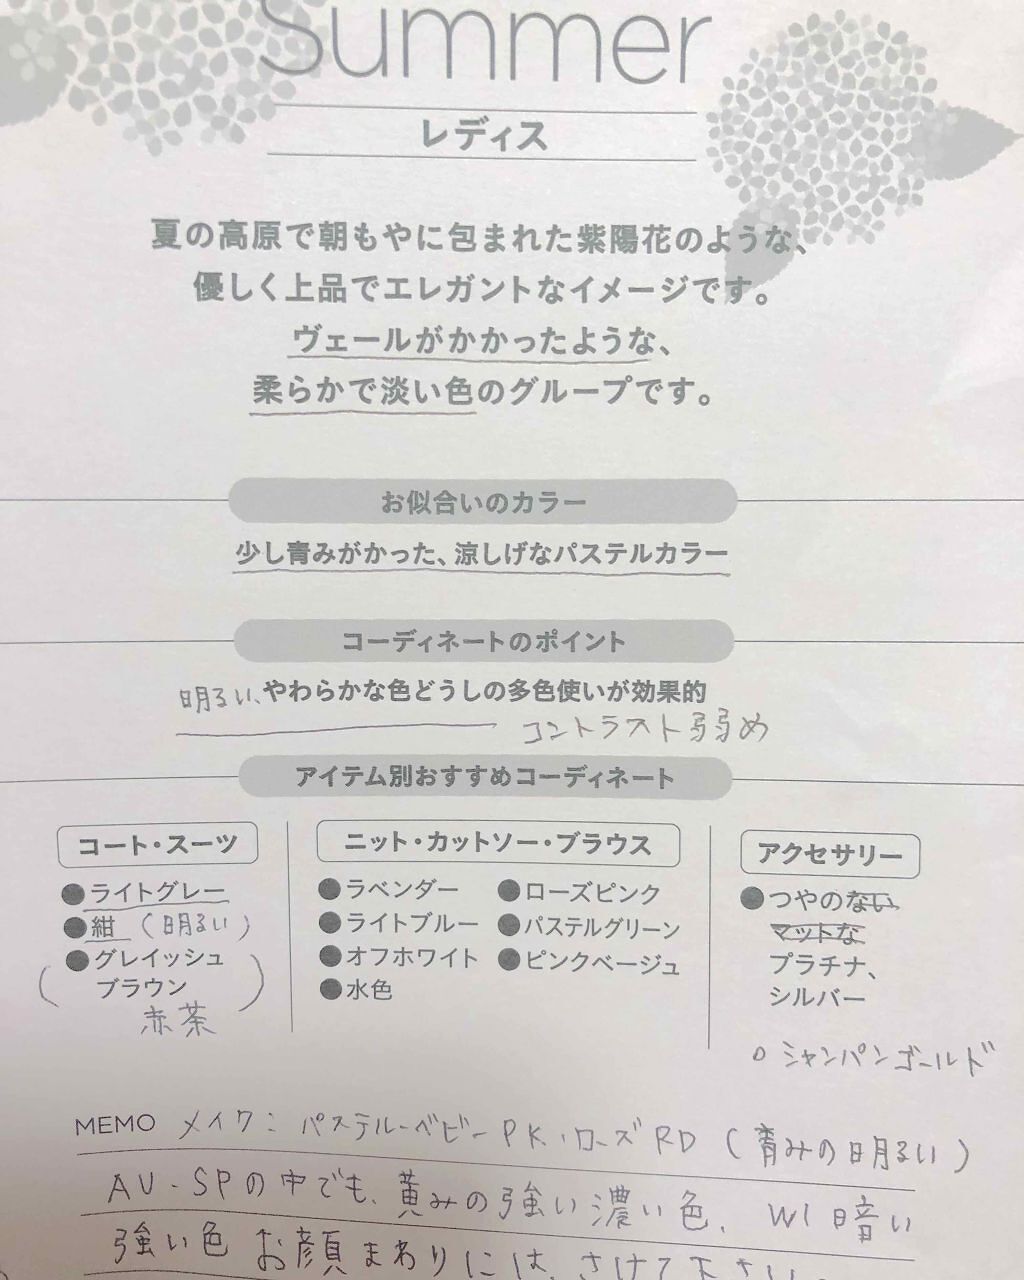 Summer
レディス
夏の高原で朝もやに包まれた紫陽花のような、
優しく上品でエレガントなイメージです。
ヴェールがかかったような、
柔らかで淡い色のグループです。
お似合いのカラー
少し青みがかった、涼しげなパステルカラー
コーディネートのポイント
明るい、やわらかな色どうしの多色使いが効果的
コントラスト弱め
アイテム別おすすめコーディネート
コート・スーツ
●ライトグレー
●紺 (明るい)
(●グレイッシュ
ブラウン)
赤茶
ニット・カットソー・ブラウス
●ラベンダー
●ライトブルー
●オフホワイト
●水色
●ローズピンク
●パステルグリーン
●ピンクベージュ
アクセサリー
●つやのない
マットな
プラチナ、
シルバー
○ シャンパンゴールド
MEMO メイク: パステル〜ベビーPK・ローズRD (青みの明るい)
AU・SPの中でも、黄みの強い濃い色、WI暗い
強い色 お顔まわりには、さけて下さい